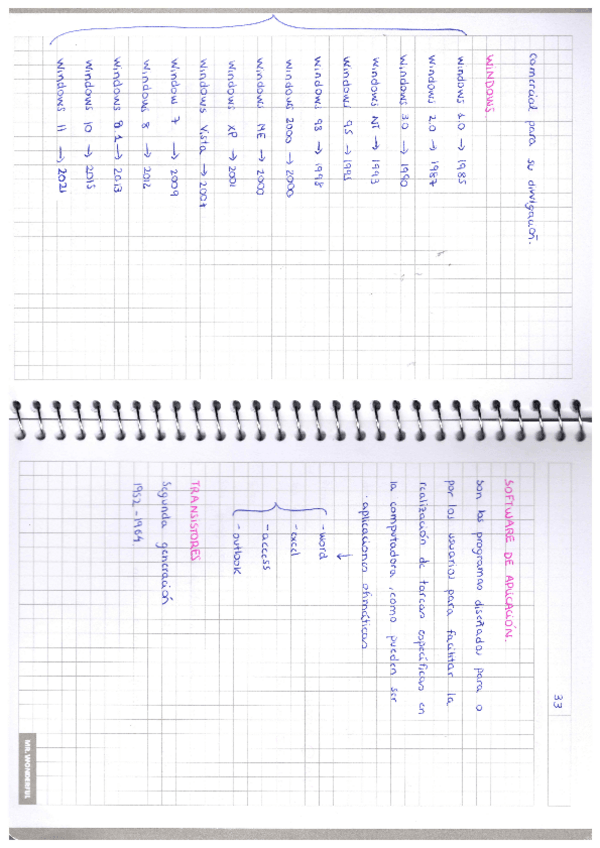 comercial para su divulgación.
WINDOWS
Windows 1.0 → 1985
Windows 2.0 → 1987
Windows 3.0 → 1990
Windows NT → 1993
Windows 95 → 1995
Windows 98 → 1998
Windows 2000 → 2000
Windows ME → 2000
Windows XP → 2001
Windows Vista → 2007
Window 7 → 2009
Windows 8 → 2012
Windows 8.1 → 2013
Windows 10 → 2015
Windows 11 → 2021
33
SOFTWARE DE APLICACIÓN.
son los programas diseñados para o
por los usuarios para facilitar la
realización de tareas específicas en
la computadora, como pueden ser
· aplicaciones ofimáticas
↓
-word
-excel
-access
-outlook
TRANSISTORES
Segunda generación
1952-1964
MR. WONDERFUL